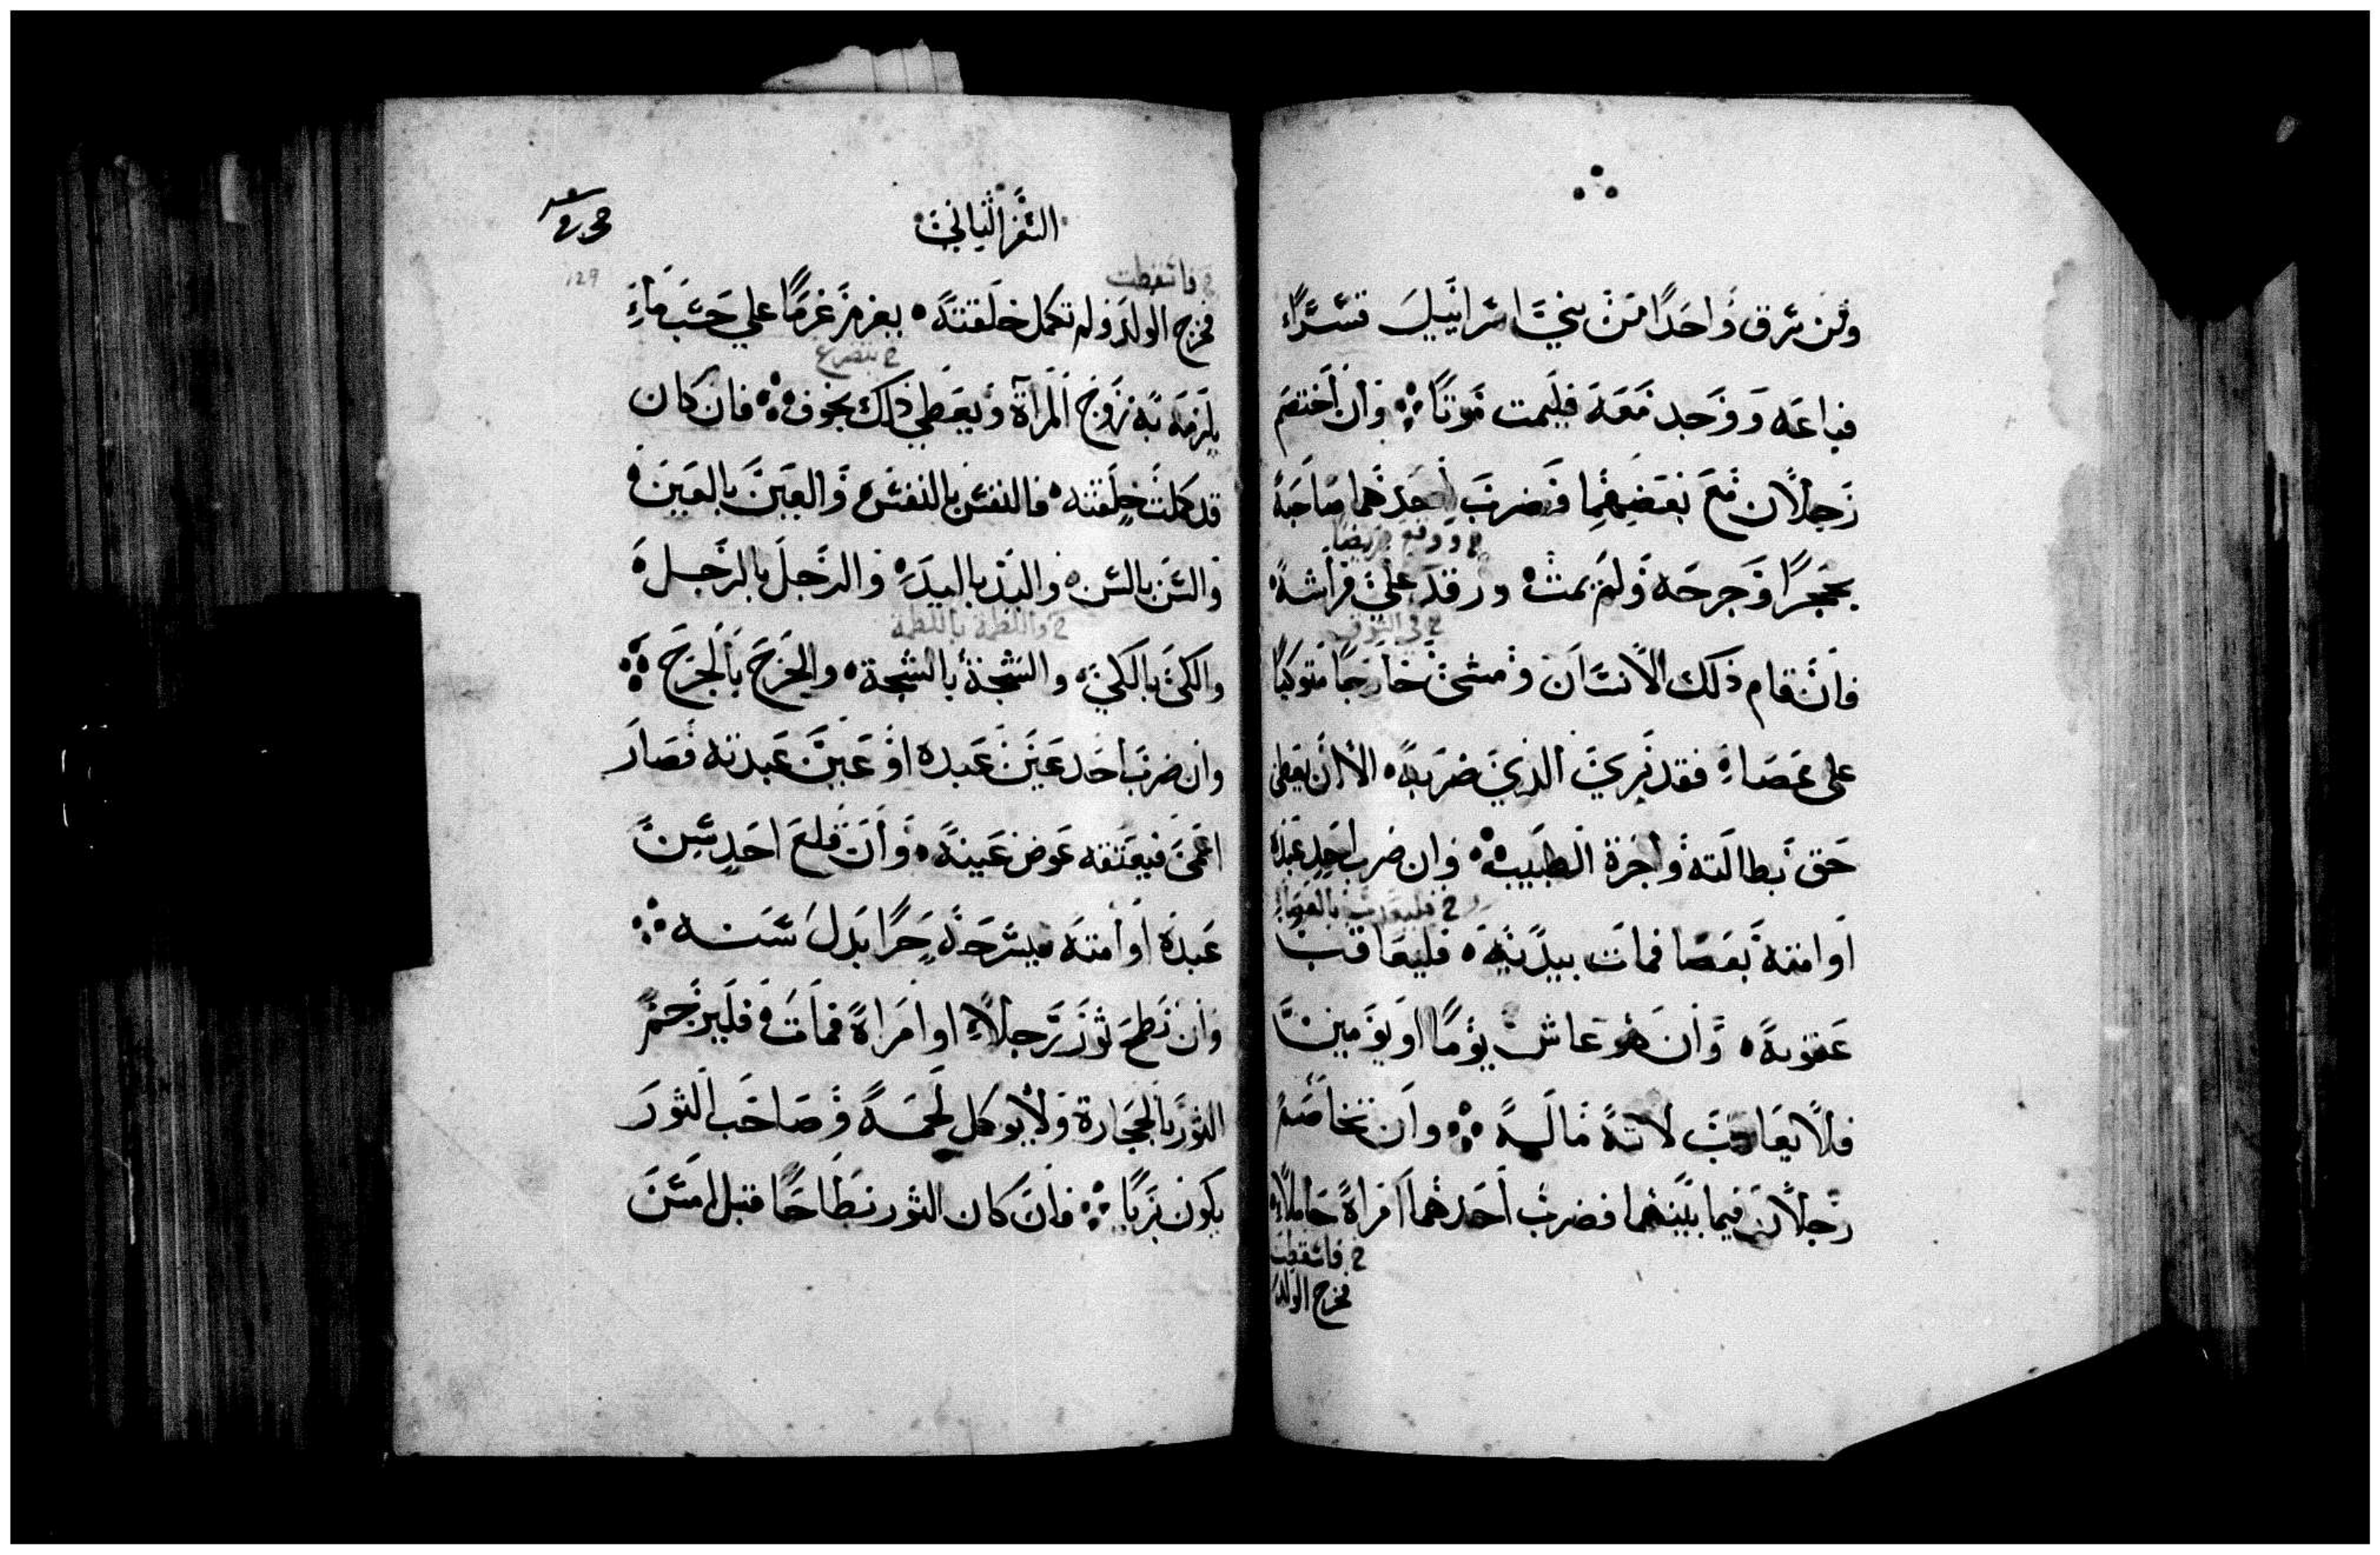 ومن سرق واحدًا من بني اسراييل تسرًا
فباعه ووجد معه فليمت موتًا ؞ وان اختصم
رجلان مع بعضهما فضرب احدهما صاحبه
خ ووقع مريضا
بحجرًا وجرحه ولم يمت ورقد على فراشه
خ في السوق
فان قام ذلك الانسان ومشى خارجًا متوكيًا
على عصاه فقد بري الذي ضربه الا ان يعطي
حق بطالته واجرة الطبيب وان ضرب احد عبده
او امته بعصا فمات بيديه فليعاقب
عقوبة وان هو عاش يومًا او يومين
فلا يعاقب لانه ماله ؞ وان تخاصم
رجلان فيما بينهما فضرب احدهما امراة حاملا
خ فاسقطت
فخرج الولد
السفر الثاني
129
خ فاسقطت
فخرج الولد ولم تكمل خلقته يغرم غرمًا على حسب ما
خ بتضرع
يلزمه به زوج المراة ويعطي ذلك بخوف ؞ فان كان
قد كملت خلقته فالنفس بالنفس والعين بالعين
والسن بالسن واليد باليد والرجل بالرجل
خ واللطمة باللطمة
والكي بالكي والشجة بالشجة والجرح بالجرح ؞
وان ضرب احد عين عبده او عين عبدته فصار
اعمى فيعتقه عوض عينه وان قلع احد سن
عبده او امته فيسرحه حرًا بدل سنه ؞
وان نطح ثور رجلا او امراة فمات فليرجم
الثور بالحجارة ولا يوكل لحمه وصاحب الثور
يكون بريًا ؞ فان كان الثور نطاحًا قبل امس